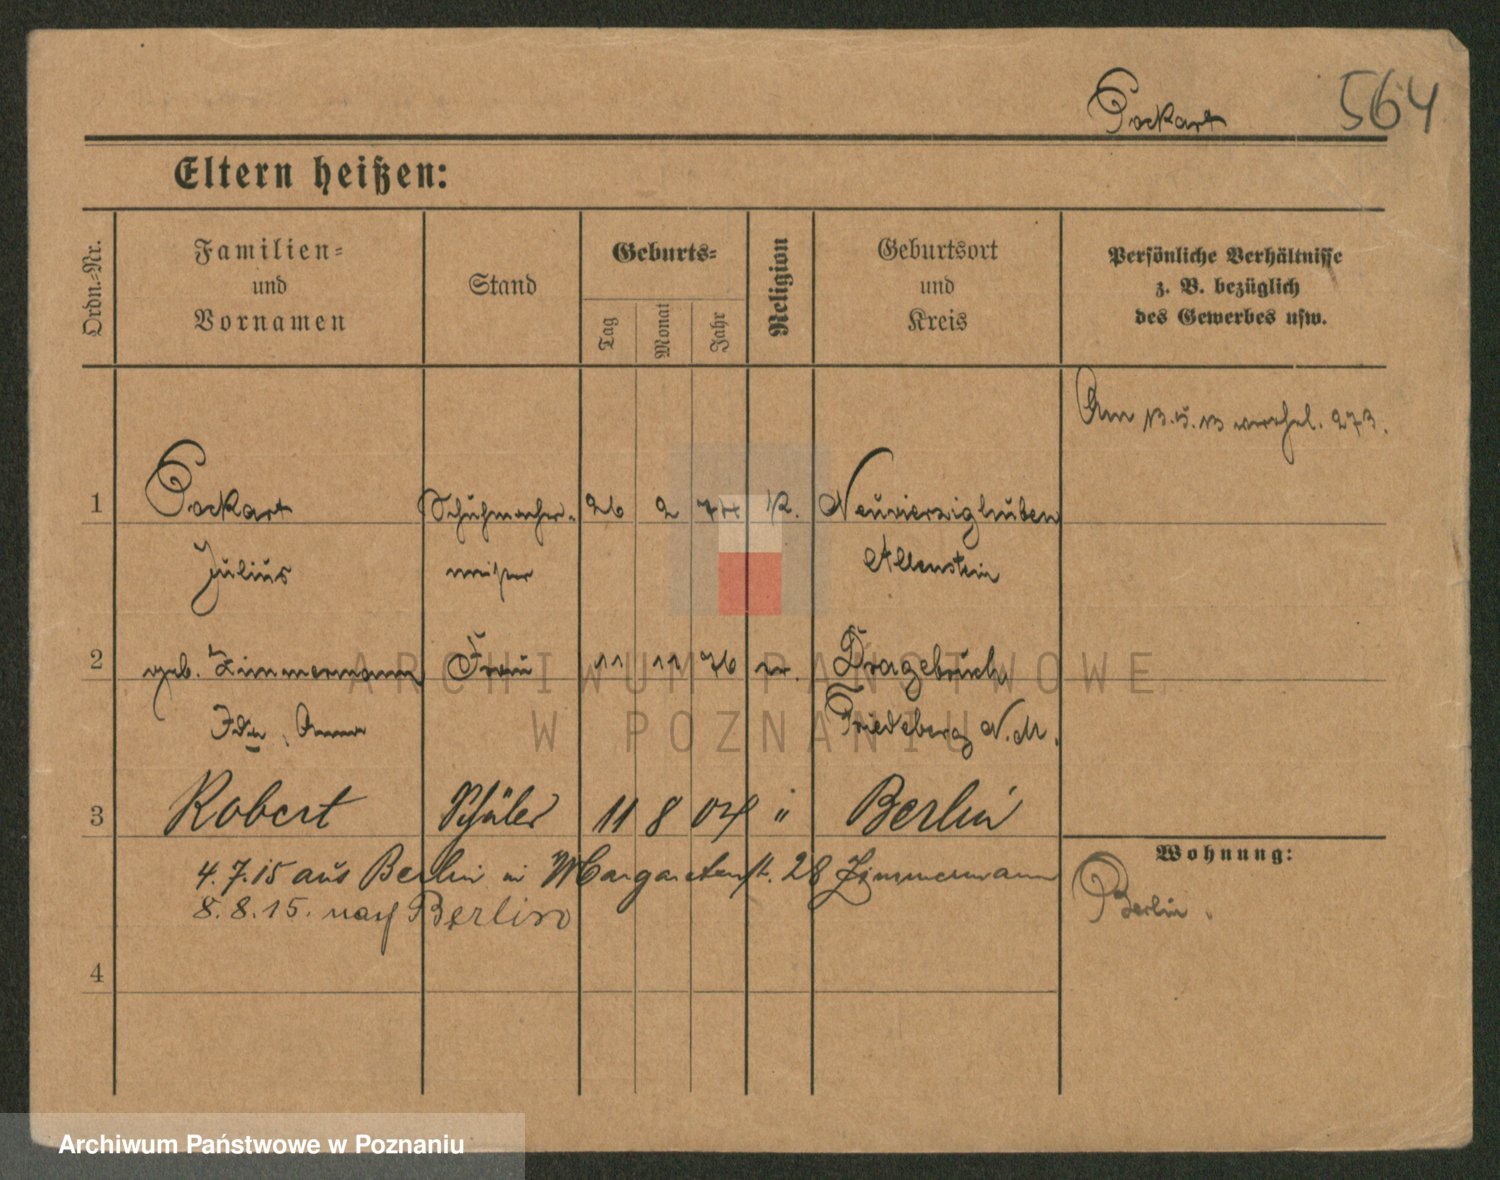 564
Eltern heißen:
Ordn.-Nr.
Familien-
und
Vornamen
Stand
Geburts-
Tag
Monat
Jahr
Religion
Geburtsort
und
Kreis
Persönliche Verhältnisse
z. B. bezüglich
des Gewerbes usw.
Am 13.5.13 273.
1
Schuhmacher- 26 2 77 K. Neuvierzighuben
Julius meister Allenstein
2 geb. Zimmermann Frau 11 11 76 Dragebruch
Ida, Anna Friedeberg N.M.
3 Robert Schüler 11 8 04 " Berlin
4.7.15 aus Berlin in Margaretenstr. 28 Zimmermann
8.8.15. nach Berlin
4
Wohnung:
Berlin.
ARCHIWUM PAŃSTWOWE
W POZNANIU
Archiwum Państwowe w Poznaniu